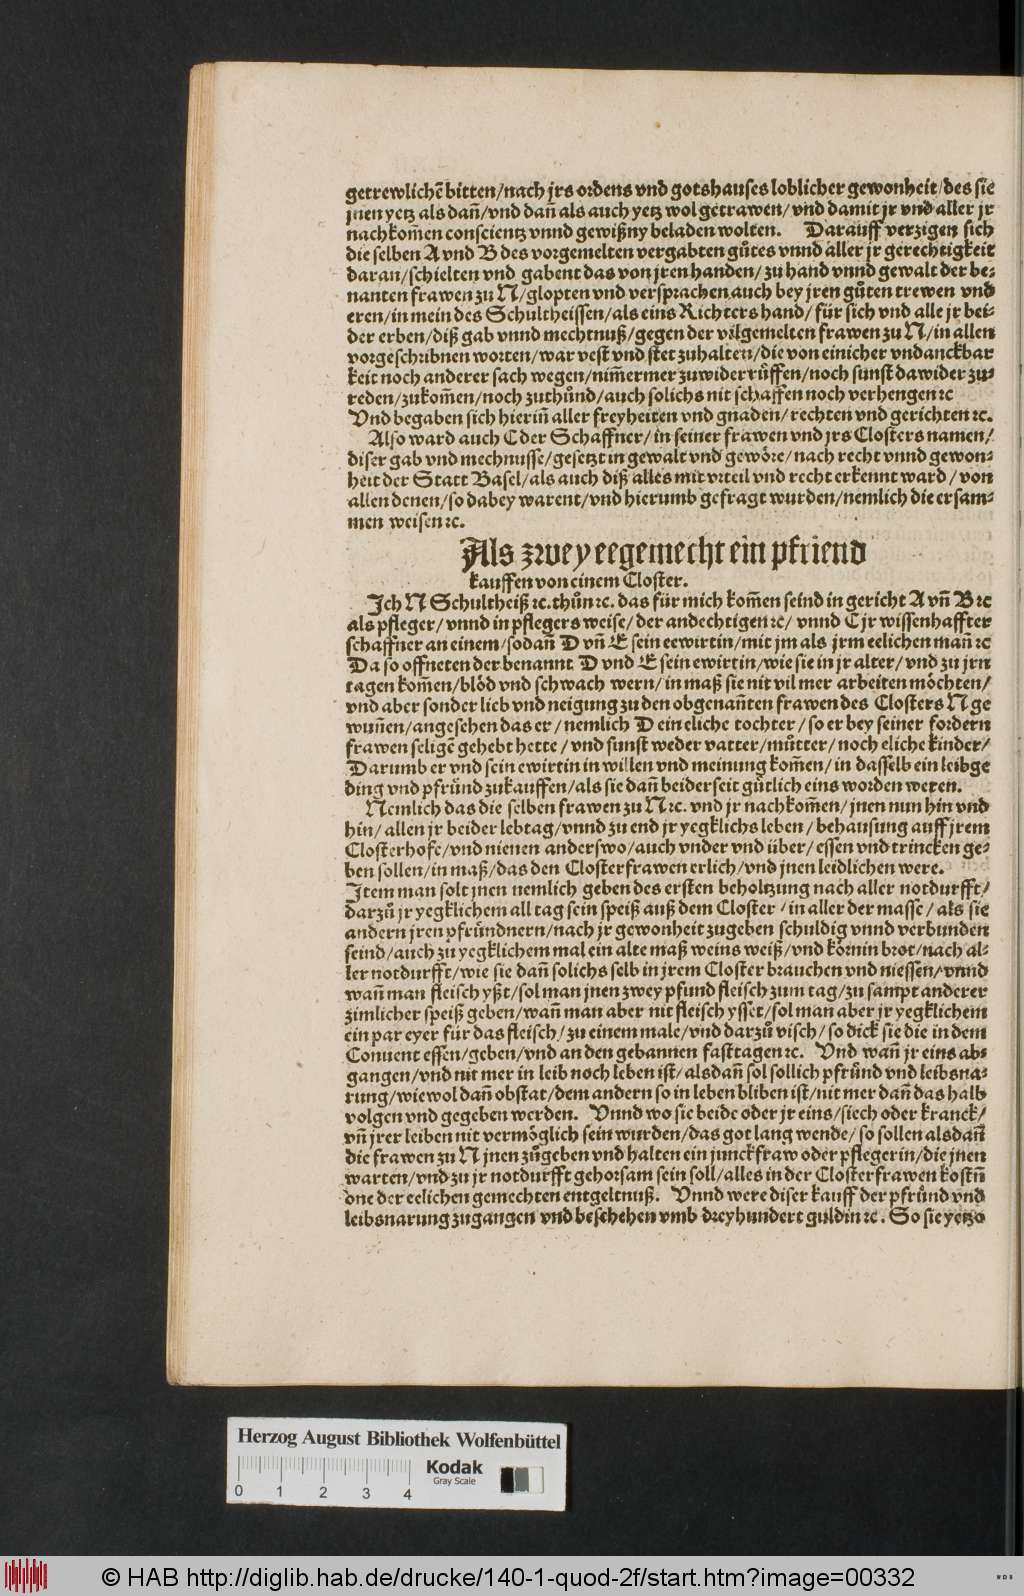 getrewlichẽ bitten/nach jrs ordens vnd gotshauses loblicher gewonheit/des sie
jnen yetz als dañ/vnd dañ als auch yetz wol getrawen/vnd damit jr vnd aller jr
nachkom̃en conscientz vnnd gewißny beladen wolten. Darauff verzigen sich
die selben A vnd B des vorgemelten vergabten gůtes vnnd aller jr gerechtigkeit
daran/schielten vnd gabent das von jren handen/zu hand vnnd gewalt der be⸗
nanten frawen zu N/glopten vnd versprachen auch bey jren gůten trewen vnd
eren/in mein des Schultheissen/als eins Richters hand/für sich vnd alle jr bei⸗
der erben/diß gab vnnd mechtnuß/gegen der vilgemelten frawen zu N/in allen
vorgeschribnen worten/war vest vnd stet zuhalten/die von einicher vndanckbar
keit noch anderer sach wegen/nim̃ermer zuwiderrůffen/noch sunst dawider zu⸗
reden/zukom̃en/noch zuthůnd/auch solichs nit schaffen noch verhengen ⁊c
Vnd begaben sich hieriñ aller freyheiten vnd gnaden/rechten vnd gerichten ⁊c.
Also ward auch C der Schaffner/in seiner frawen vnd jrs Closters namen/
diser gab vnd mechnusse/gesetzt in gewalt vnd gewöre/nach recht vnnd gewon⸗
heit der Statt Basel/als auch diß alles mit vrteil vnd recht erkennt ward/von
allen denen/so dabey warent/vnd hierumb gefragt wurden/nemlich die ersam⸗
men weisen ⁊c.
Als zwey eegemecht ein pfriend
kauffen von einem Closter.
Ich N Schultheiß ⁊c. thůn ⁊c. das für mich kom̃en seind in gericht A vñ B ⁊c
als pfleger/vnnd in pflegers weise/der andechtigen ⁊c/vnnd C jr wissenhaffter
schaffner an einem/sodañ D vñ E sein eewirtin/mit jm als jrm eelichen mañ ⁊c
Da so offneten der benannt D vnd E sein ewirtin/wie sie in jr alter/vnd zu jrn
tagen kom̃en/blöd vnd schwach wern/in maß sie nit vil mer arbeiten möchten/
vnd aber sonder lieb vnd neigung zu den obgenañten frawen des Closters N ge
wuñen/angesehen das er/nemlich D ein eliche tochter/so er bey seiner fordern
frawen seligẽ gehebt hette/vnd sunst weder vatter/můtter/noch eliche kinder/
Darumb er vnd sein ewirtin in willen vnd meinung kom̃en/in dasselb ein leibge
ding vnd pfründ zukauffen/als sie dañ beiderseit gůtlich eins worden weren.
Nemlich das die selben frawen zu N ⁊c. vnd jr nachkom̃en/jnen nun hin vnd
hin/allen jr beider lebtag/vnnd zu end jr yegklichs leben/behausung auff jrem
Closterhofe/vnd nienen anderswo/auch vnder vnd über/essen vnd trincken ge⸗
ben sollen/in maß/das den Closterfrawen erlich/vnd jnen leidlichen were.
Item man solt jnen nemlich geben des ersten beholtzung nach aller notdurfft/
darzů jr yegklichem all tag sein speiß auß dem Closter/in aller der masse/als sie
andern jren pfründnern/nach jr gewonheit zugeben schuldig vnnd verbunden
seind/auch zu yegklichem mal ein alte maß weins weiß/vnd körnin brot/nach al⸗
ler notdurfft/wie sie dañ solichs selb in jrem Closter brauchen vnd niessen/vnnd
wañ man fleisch yßt/sol man jnen zwey pfund fleisch zum tag/zu sampt anderer
zimlicher speiß geben/wañ man aber nit fleisch ysset/sol man aber jr yegklichem
ein par eyer für das fleisch/zu einem male/vnd darzů visch/so dick sie die in dem
Conuent essen/geben/vnd an den gebannen fasttagen ⁊c. Vnd wañ jr eins ab⸗
gangen/vnd nit mer in leib noch leben ist/alsdañ sol sollich pfründ vnd leibsna⸗
rung/wiewol dañ obstat/dem andern so in leben bliben ist/nit mer dañ das halb
volgen vnd gegeben werden. Vnnd wo sie beide oder jr eins/siech oder kranck/
vñ jrer leiben nit vermöglich sein wurden/das got lang wende/so sollen alsdañ
die frawen zu N jnen zůgeben vnd halten ein junckfraw oder pflegerin/die jnen
warten/vnd zu jr notdurfft gehorsam sein soll/alles in der Closterfrawen kostñ
one der eelichen gemechten entgeltnuß. Vnnd were diser kauff der pfründ vnd
leibsnarung zugangen vnd beschehen vmb dreyhundert guldin ⁊c. So sie yetzo
Herzog August Bibliothek Wolfenbüttel
Kodak
Gray Scale
0 1 2 3 4
© HAB http://diglib.hab.de/drucke/140-1-quod-2f/start.htm?image=00332